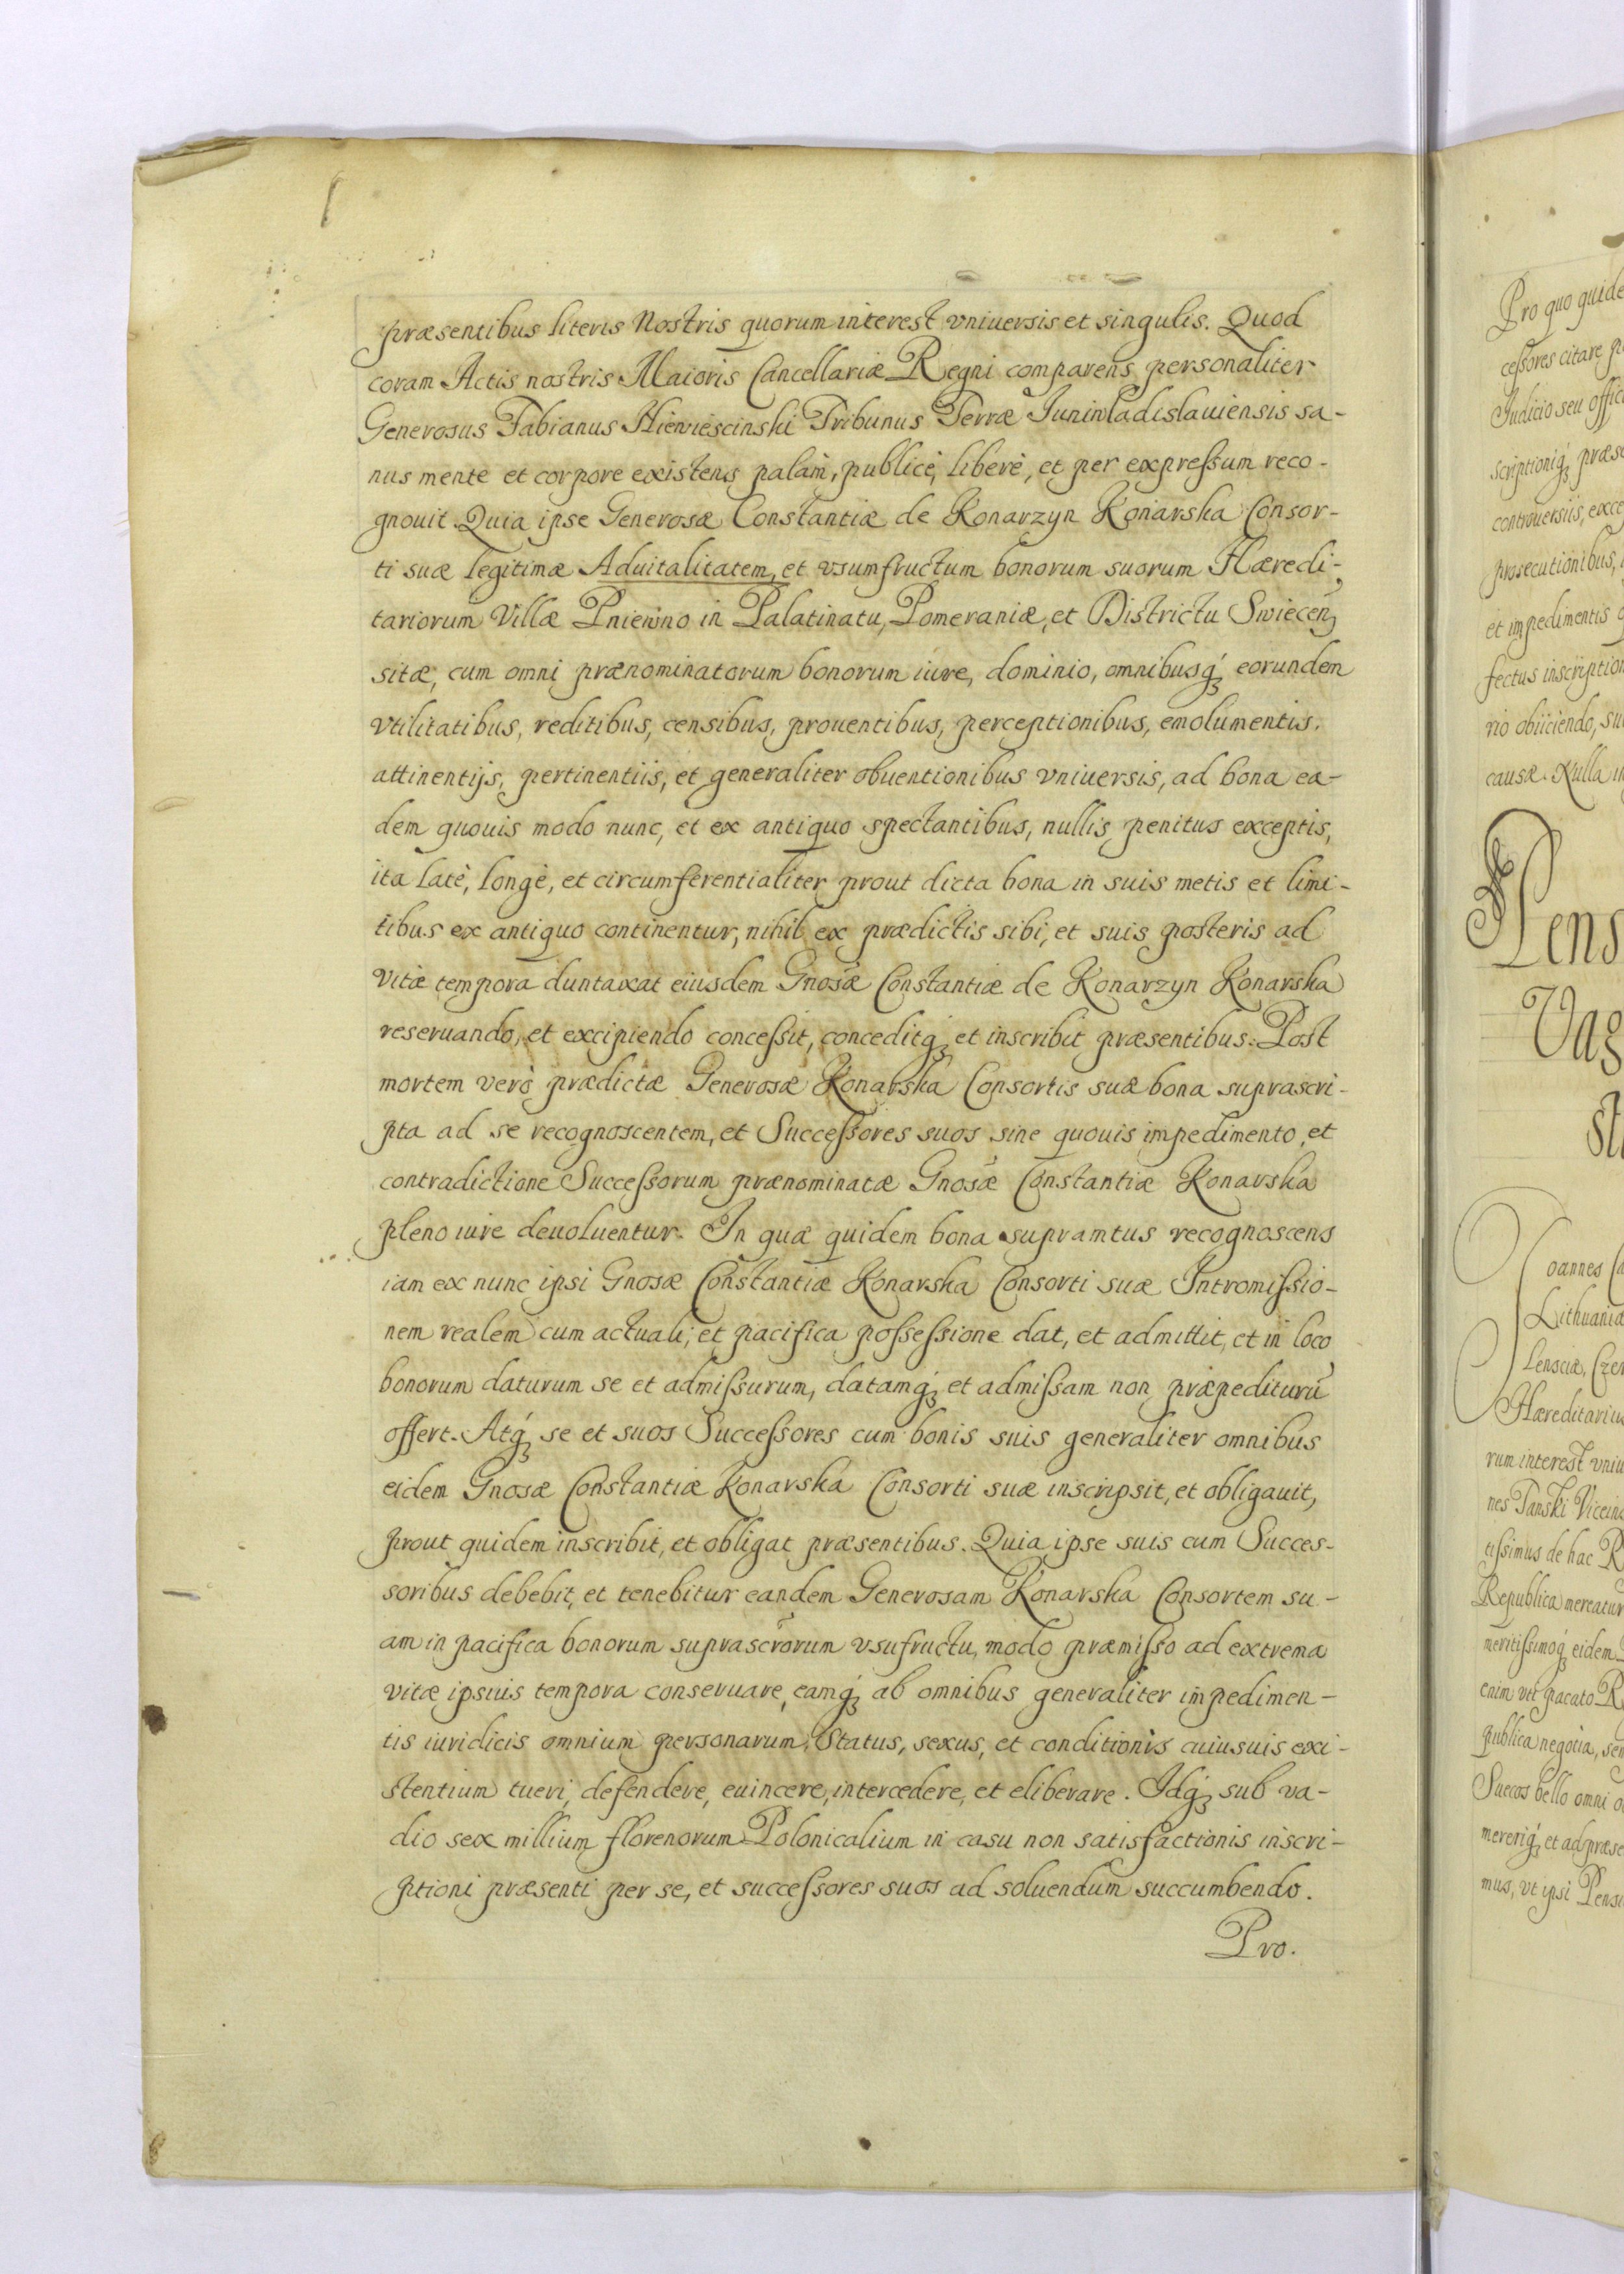 præsentibus literis Nostris quorum interest vniuersis et singulis. Quod
coram Actis nostris Maioris Cancellariæ Regni comparens personaliter
Generosus Fabianus Niewiescinski Tribunus Terræ Iuniwladislauiensis sa-
nus mente et corpore existens palàm, publicè, liberè, et per expreſsum reco-
gnouit. Quia ipse Generosæ Constantiæ de Konarzyn Konarska Consor-
ti suæ legitimæ Aduitalitatem, et vsumfructum bonorum suorum Hæredi-
tariorum Villæ Pniewno in Palatinatu Pomeraniæ, et Districtu Swiecen
sitæ, cum omni prænominatorum bonorum iure, dominio, omnibusq́ꝫ eorundem
vtilitatibus, reditibus, censibus, prouentibus, perceptionibus, emolumentis,
attinentijs, pertinentiis, et generaliter obuentionibus vniuersis, ad bona ea-
dem quouis modo nunc, et ex antiquo spectantibus, nullis penitus exceptis,
ita latè, longè, et circumferentialiter prout dicta bona in suis metis et limi-
tibus ex antiquo continentur, nihil ex prædictis sibi, et suis posteris ad
vitæ tempora duntaxat eiusdem Gnosæ Constantiæ de Konarzyn Konarska
reseruando, et excipiendo conceſsit, conceditq́ꝫ et inscribit præsentibus. Post
mortem verò prædictæ Generosæ Konarska Consortis suæ bona suprascri-
pta ad se recognoscentem, et Succeſsores suos sine quouis impedimento, et
contradictione Succeſsorum prænominatæ Gnosæ Constantiæ Konarska
pleno iure deuoluentur. In quæ quidem bona supramtus recognoscens
iam ex nunc ipsi Gnosæ Constantiæ Konarska Consorti suæ Intromiſsio-
nem realem cum actuali, et pacifica poſseſsione dat, et admittit, et in loco
bonorum daturum se et admiſsurum, datamq́ꝫ et admiſsam non præpediturū
offert. Atq́ꝫ se et suos Succeſsores cum bonis suis generaliter omnibus
eidem Gnosæ Constantiæ Konarska Consorti suæ inscripsit, et obligauit,
prout quidem inscribit, et obligat præsentibus. Quia ipse suis cum Succes-
soribus debebit, et tenebitur eandem Generosam Konarska Consortem su-
am in pacifica bonorum suprascrorum vsufructu, modo præmiſso ad extrema
vitæ ipsius tempora conseruare, eamq́ꝫ ab omnibus generaliter impedimen-
tis iuridicis omnium personarum, Status, sexus, et conditionis cuiusuis exi-
stentium tueri, defendere, euincere, intercedere, et eliberare. Idq́ꝫ sub va-
dio sex millium florenorum Polonicalium in casu non satisfactionis inscri-
ptioni præsenti per se, et succeſsores suos ad soluendum succumbendo.
Pro.
Pro quo quide
ceſsores citare
Iudicio seu offic
scriptioniq́ꝫ præs
controuersiis, exce
prosecutionibus,
et impedimentis
fectus inscription
rio obiiciendo, su
causæ. Nulla
Pens
Vag
oannes
Lithuaniæ
lensciæ, Czer
Hæreditarius
rum interest vniu
nes Panski
tiſsimus de hac R
Republica mereatur
meritiſsimoq́ꝫ eidem
enim vti pacato R
publica negotia, se
Suecos bello omni
mereriq́ꝫ et ad præse
mus, vt ipsi Pens